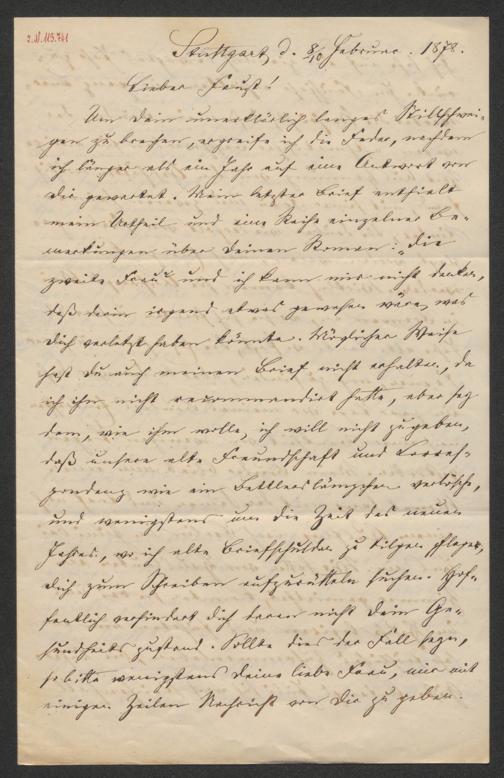 I.N. 113.741
Stuttgart d. 8/10 Februar. 1878.
Lieber Faust!
Um Dein unerklärlich langes Stillschwei-
gen zu brechen, ergreife ich die Feder, nachdem
ich länger als ein Jahr auf eine Antwort von
Dir gewartet. Mein letzter Brief enthielt
mein Urtheil und eine Reihe einzelner Be-
merkungen über Deinen Roman: „die
zweite Frau“ und ich kann mir nicht denken,
daß darin irgend etwas gewesen wäre, was
Dich verletzt haben könnte. Möglicher Weise
hast Du auch meinen Brief nicht erhalten, da
ich ihn nicht recommandirt hatte, aber sey
dem, wie ihm wolle, ich will nicht zugeben,
daß unsere alte Freundschaft und Corres-
pondenz wie ein Bettlerslämpchen verlösche,
und wenigstens um die Zeit des neuen
Jahres, wo ich alte Briefschulden zu tilgen pflege,
Dich zum Schreiben aufzurütteln suchen. Hof-
fentlich verhindert Dich daran nicht Dein Ge-
sundheitszustand. Sollte dies der Fall seyn,
so bitte wenigstens Deine liebe Frau, mir mit
einigen Zeilen Nachricht von Dir zu geben.